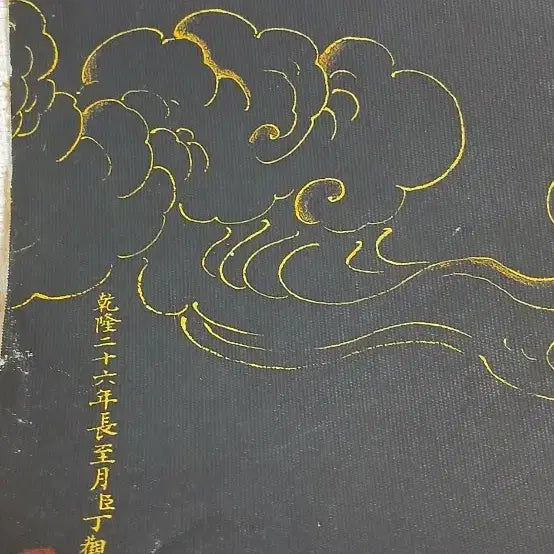 乾隆二十六年長至月臣丁觀